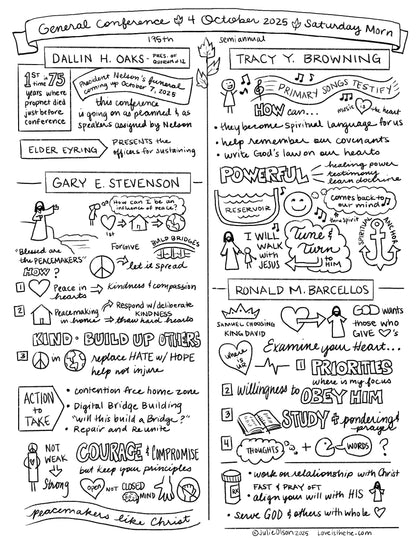 General Conference 4 October 2025 Saturday Morn
195th semiannual
DALLIN H. OAKS - PRES. OF QUORUM of 12
1ST time in 75 years where prophet died just before conference
President Nelson's funeral coming up October 7, 2025
this conference
is going on as planned & as
speakers assigned by Nelson
ELDER EYRING
PRESENTS the
officers for sustaining
GARY E. STEVENSON
How can I be an
influence of peace?
"Blessed are
the PEACEMAKERS"
HOW?
Forgive
BUILD BRIDGES
let it spread
1 Peace in
hearts
kindness & compassion
2 Peacemaking
in home
Respond w/ deliberate
KINDNESS
thaw hard hearts
KIND · BUILD UP OTHERS
3 in
replace HATE w/ HOPE
help not injure
ACTION
to
TAKE
• contention free home zone
• Digital Bridge Building
"will this build a Bridge?"
• Repair and Reunite
NOT
WEAK
Strong
COURAGE & COMPROMISE
but keep your principles
open
NOT CLOSED
MIND
peacemakers like Christ
TRACY Y. BROWNING
PRIMARY SONGS TESTIFY
HOW can...
music
the heart
• they become Spiritual language for us
• help remember our covenants
• write God's law on our hearts
POWERFUL
healing power
testimony
learn doctrine
RESERVOIR
comes back to
our minds
Spirit
I WILL
WALK
with
JESUS
Time &
Turn
to HIM
SPIRITUAL
ANCHOR
RONALD M. BARCELLOS
SAMUEL CHOOSING
KING DAVID
GOD wants
those who
GIVE
S
Where
is my
Examine your Heart...
1 PRIORITIES
where is my focus
2 willingness to OBEY HIM
3 STUDY & pondering &
prayer
4 THOUGHTS + WORDS ?
RX
• work on relationship with Christ
FAST & PRAY OFT
• align your will with HIS
• serve GOD & others with whole
©Julie Olson 2025 Loveisthethe.com